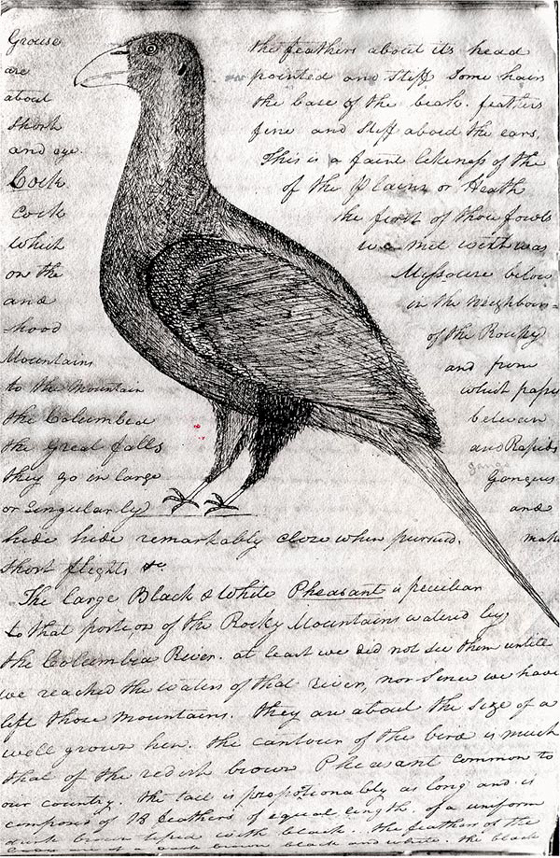 Grouse the feathers about its head
are pointed and stiff Some hairs
about the base of the beak. feathers
Short fine and stiff about the ears.
and eye. This is a faint likeness of the
Cock of the Plains or Heath
Cock the first of those fowls
which we met with was
on the Missouri below
and in the neighbour-
hood of the Rocky
Mountains and from
to the Mountain which pass
the Columbia between
the Great falls and Rapids
they go in large Gangues
or Singularly and
hide hide remarkably close when pursued. make
Short flights &c
The large Black & White Pheasant is peculiar
to that portion of the Rocky Mountains watered by
the Columbia River. at least we did not see them untile
we reached the waters of that river, nor Since we have
left those mountains. they are about the Size of a
well grown hen. the contour of the bird is much
that of the redish brown Pheasant common to
our country. the tail is proportionably as long and is
composed of 18 feathers of equal length. of a uniform
dark brown tiped with black. the feathers of the